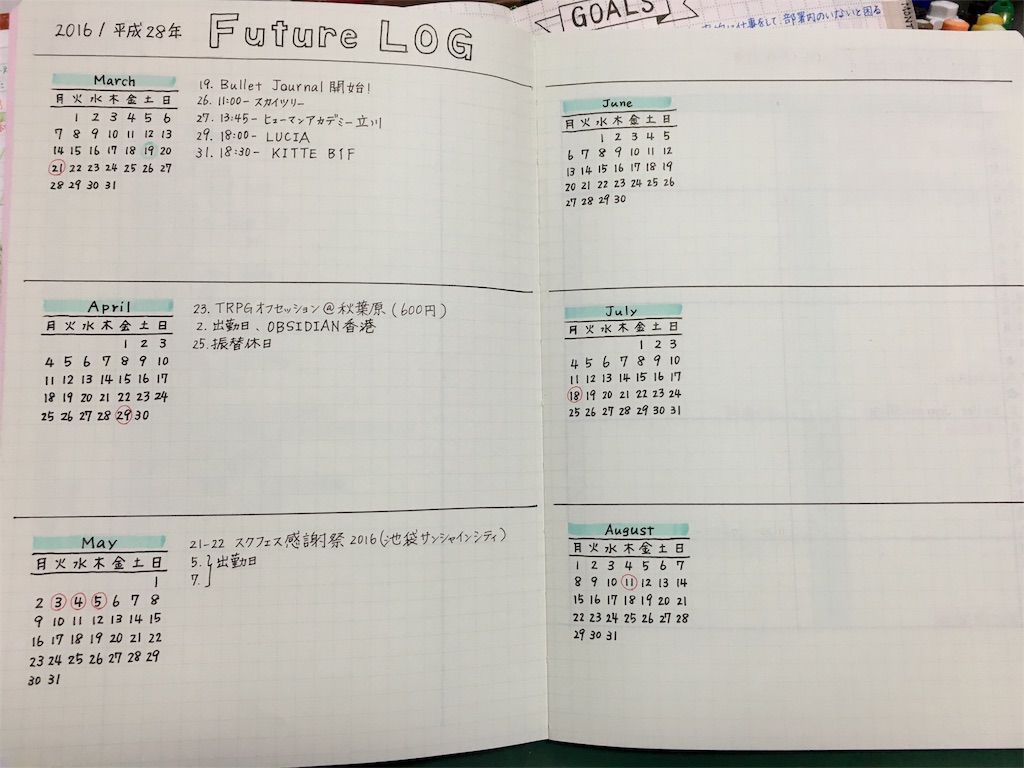 2016 / 平成28年
Future LOG
March
月 火 水 木 金 土 日
1 2 3 4 5 6
7 8 9 10 11 12 13
14 15 16 17 18 19 20
21 22 23 24 25 26 27
28 29 30 31
19. Bullet Journal 開始!
26. 11:00- スカイツリー
27. 13:45- ヒューマンアカデミー立川
29. 18:00- LUCIA
31. 18:30- KITTE B1F
April
月 火 水 木 金 土 日
1 2 3
4 5 6 7 8 9 10
11 12 13 14 15 16 17
18 19 20 21 22 23 24
25 26 27 28 29 30
23. TRPGオフセッション@秋葉原(600円)
2. 出勤日、OBSIDIAN香港
25. 振替休日
May
月 火 水 木 金 土 日
1
2 3 4 5 6 7 8
9 10 11 12 13 14 15
16 17 18 19 20 21 22
23 24 25 26 27 28 29
30 31
21-22 スクフェス感謝祭 2016(池袋サンシャインシティ)
5. 出勤日
7.
GOALS
仕事をして、部署内のいないと困る
June
月 火 水 木 金 土 日
1 2 3 4 5
6 7 8 9 10 11 12
13 14 15 16 17 18 19
20 21 22 23 24 25 26
27 28 29 30
July
月 火 水 木 金 土 日
1 2 3
4 5 6 7 8 9 10
11 12 13 14 15 16 17
18 19 20 21 22 23 24
25 26 27 28 29 30 31
August
月 火 水 木 金 土 日
1 2 3 4 5 6 7
8 9 10 11 12 13 14
15 16 17 18 19 20 21
22 23 24 25 26 27 28
29 30 31